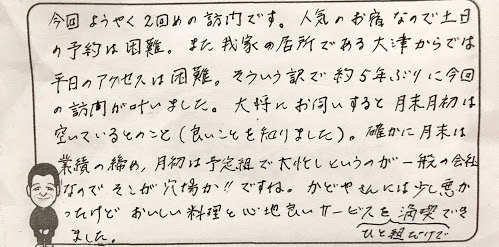 今回ようやく2回めの訪問です。人気のお宿なので土日
の予約は困難。また我家の居所である大津からでは
平日のアクセスは困難。そういう訳で約5年ぶりに今回
の訪問が叶いました。大将にお伺いすると月末月初は
空いているとのこと(良いことを知りました)。確かに月末は
業績の締め,月初は予定組で大忙しというのが一般の会社
なのでそこが穴場か!!ですね。かどやさんには少し悪か
ったけどおいしい料理と心地良いサービスを満喫でき
ました。
ひと組だけで